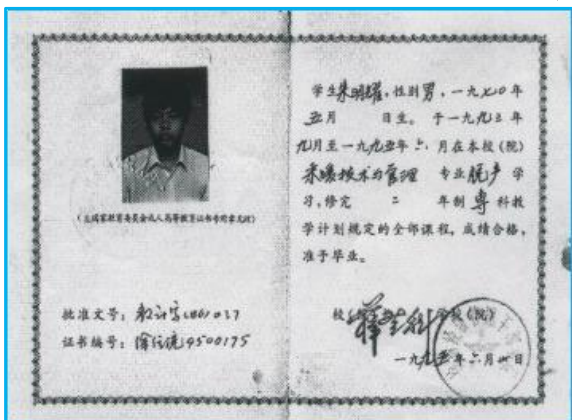 (无国家教育委员会成人高等教育证书专用章无效)
批准文号:
证书编号: 9500175
学生朱明耀,性别男,一九七〇年
五月 日生。于一九九三年
九月至一九九五年六月在本校(院)
采暖技术与管理 专业脱产学
习,修完 二 年制专科教
学计划规定的全部课程,成绩合格,
准予毕业。
校 学校(院)
一九九五年六月 日